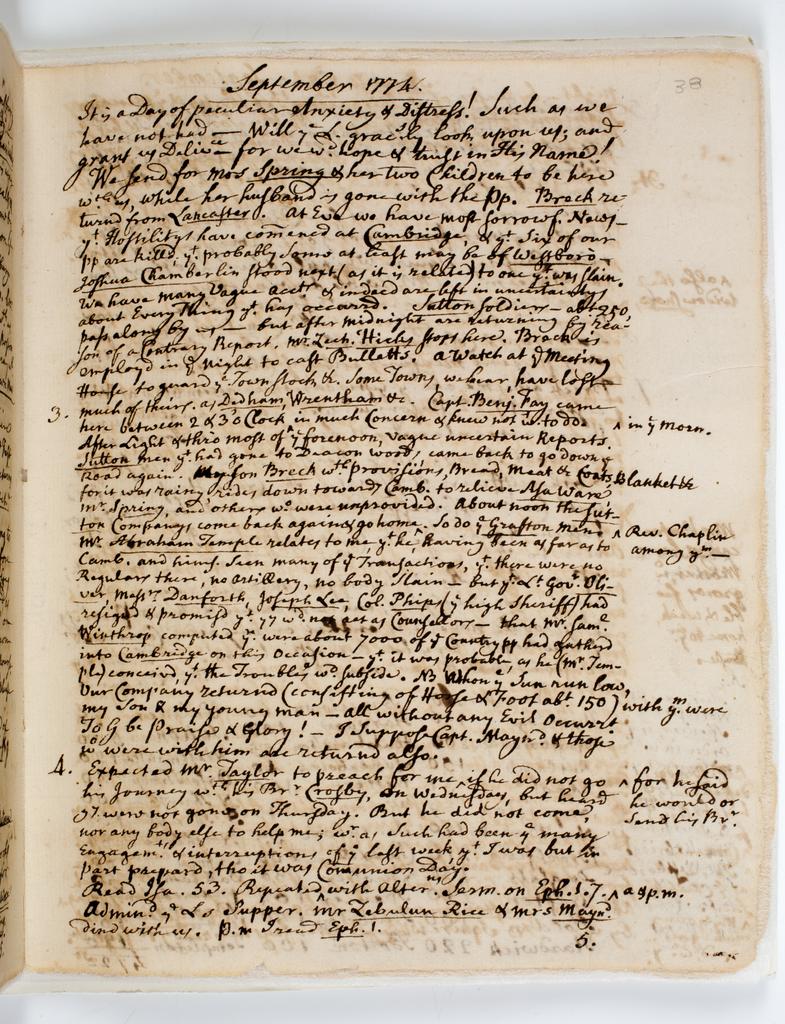 38
September 1774.
It is a Day of peculiar Anxiety & Distress! Such as we
have not had — Will ye L. gracsly look upon us; and
grant us Delivce for we wd hope & trust in His Name!
We send for mrs Spring & her two Children to be here
wth us, while her husband is gone with the pp. Breck re-
turnd from Lancaster. At Eve we have most sorrowf. News
yt Hostilitys have comenced at Cambridge & yt Six of our
pp are killd; yt probably some at least may be of Westboro.
Joshua Chamberlin stood next (as it is related) to one yt was slain.
We have many Vague acctts & indeed are left in uncertainty
about Every Thing yt has occurrd. Sutton soldiers — abt 250,
pass along by us — but after midnight are returning by rea-
son of a Contrary Report. mr Zech. Hicks stops here. Breck is
employd in ye Night to cast Bulletts. a Watch at ye Meeting
House to guard ye Town stock &c. Some Towns, we hear, have lost
3. much of theirs. as Dedham, Wrentham &c. Capt. Benj. Fay came
here between 2 & 3 o Clock in much Concern & knew not wt to do
After Light & thro most of ^ ye forenoon, vague uncertain Reports. ^ in ye morn.
Sutton men yt had gone to Deacon woods, came back to go down ye
Road again. My son Breck wth provisions, Bread, Meat &c Coats Blankets &c
for it was rainy rides down towards Camb. to relieve Asa Ware,
mr Spring, and others wo were unprovided. About noon the Sut-
ton Companys come back again & go home. So do ye Grafton men ^ ^ Rev. Chaplin
Mr. Abraham Temple relates to me, yt he, having been as far as to among ym —
Camb. and hims. Seen many of ye Transactions, yt there were no
Regulars there, no Artillery, no body Slain — but yt Lt Govr Oli-
ver, Messrs Danforth, Joseph Lee, Col. Phips (ye high Sheriff) had
resignd & promisd yt yy wd not act as Counsellors — that Mr. Saml
Winthrop computed yr were about 7000 of ye Country pp had gatherd
into Cambridge on this Occasion — yt it was probable, as he (Mr. Tem-
ple) conceivd, yt the Troubles wd subside. NB When ye Sun run low,
Our Company returnd (consisting of Horse & Foot abt 150) with ym were
my son & my young man — all without any Evil Occurrt
To G be Praise & Glory! — I suppose Capt. Maynd & those
wo were with him are returnd also.
4. Expected Mr. Taylor to preach for me, if he did not go ^ for he said
his Journey wth his Br. Crosby, on Wednesday, but heard he would or
yy were not gone on Thursday. But he did not come, send his Br.
nor any body else to help me; was Such had been ye many
Engagemts & interruptions of ye last week yt I was but in
part prepard, tho it was Comunion Day.
Read Isa. 53. Repeated, with Alterns Serm. on Eph. 1. 7. ^ a & p.m.
Admind ye Ls Supper. mr Zebulun Rice & mrs Maynd
dind with us. P.m I read Eph. 1.
5.